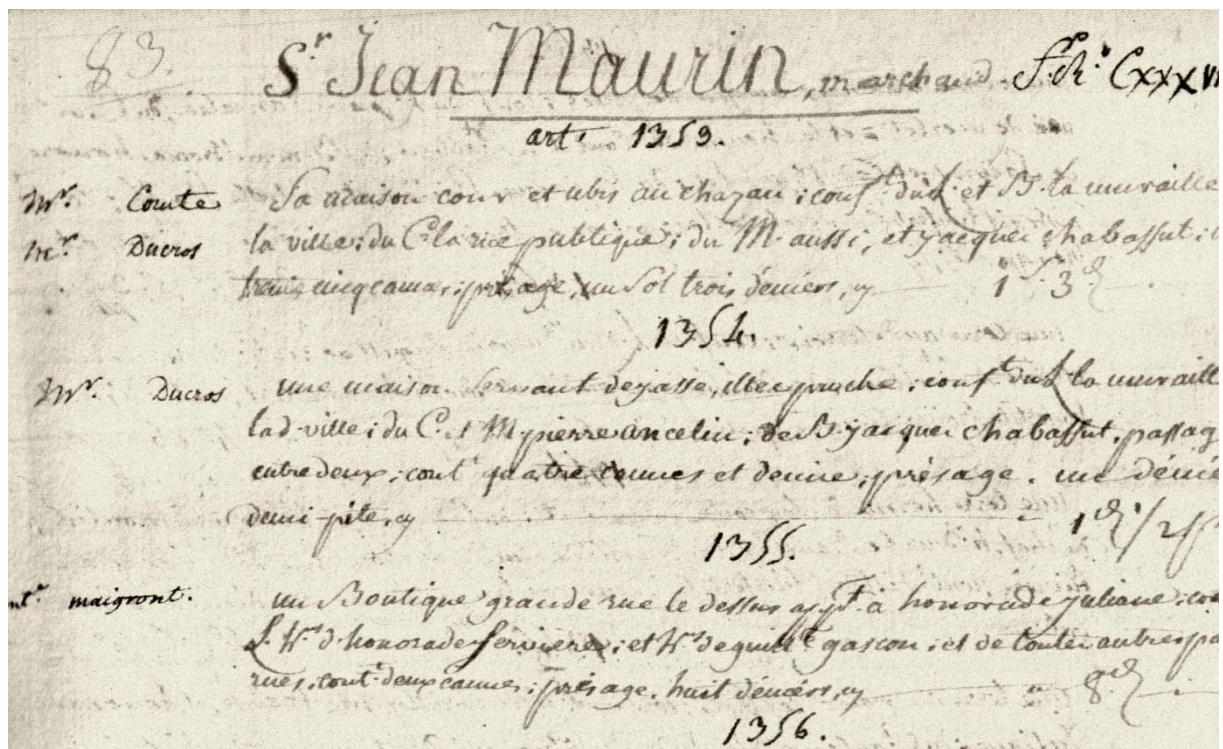 83.
Sr Jean Maurin, marchand. CXXXVI
art. 1353.
Mr. Comte Sa maison cour et ubis au chazau ; conf. du L. et B. la muraille
Mr. Ducros la ville ; du C. la rue publique ; du M. aussi, et jacques chabassut ;
cinq cannes ; présage, un sol trois déniers, cy 1 s. 3 d.
1354.
Mr. Ducros une maison servant de jasse, illec proche ; conft du L. la muraille
lad. ville ; du C. et M. pierre ancelin ; de B. jacques chabassut, passag
entre deux ; cont. quatre cannes et demie ; présage. un dénie
demi pite, cy 1 d. 1/2 p
1355.
maigront. un Boutique grande rue le dessus appt. à honorade juliane ; con
L. hrs d'honorade serviere ; et hrs de guille gascon, et de toutes autres pa
rues, cont. deux cannes ; présage. huit déniers, cy " 8 d.
1356.